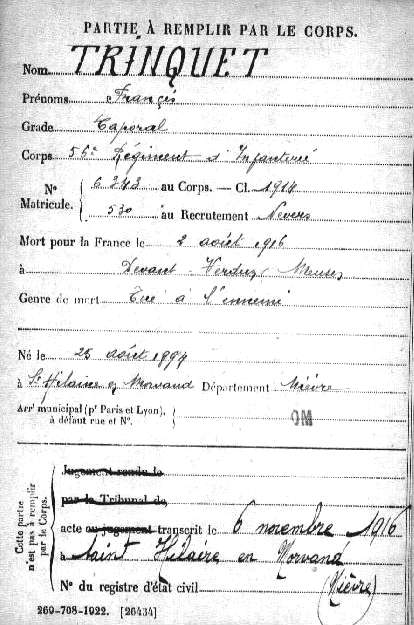 PARTIE À REMPLIR PAR LE CORPS.
Nom TRINQUET
Prénoms Françis
Grade Caporal
Corps 55e Régiment d'Infanterie
N° Matricule. { 6243 au Corps. — Cl. 1914
530 au Recrutement Nevers
Mort pour la France le 2 août 1916
à Devant Verdun (Meuse)
Genre de mort Tué à l'ennemi
Né le 25 août 1894
à St Hilaire en Morvand Département Nièvre
Arrt municipal (pr Paris et Lyon), à défaut rue et N°. {
9M
Cette partie n'est pas à remplir par le Corps.
Jugement rendu le
par le Tribunal de
acte au jugement transcrit le 6 novembre 1916
à Saint Hilaire en Morvand
(Nièvre)
N° du registre d'état civil
260-708-1922. [26434]